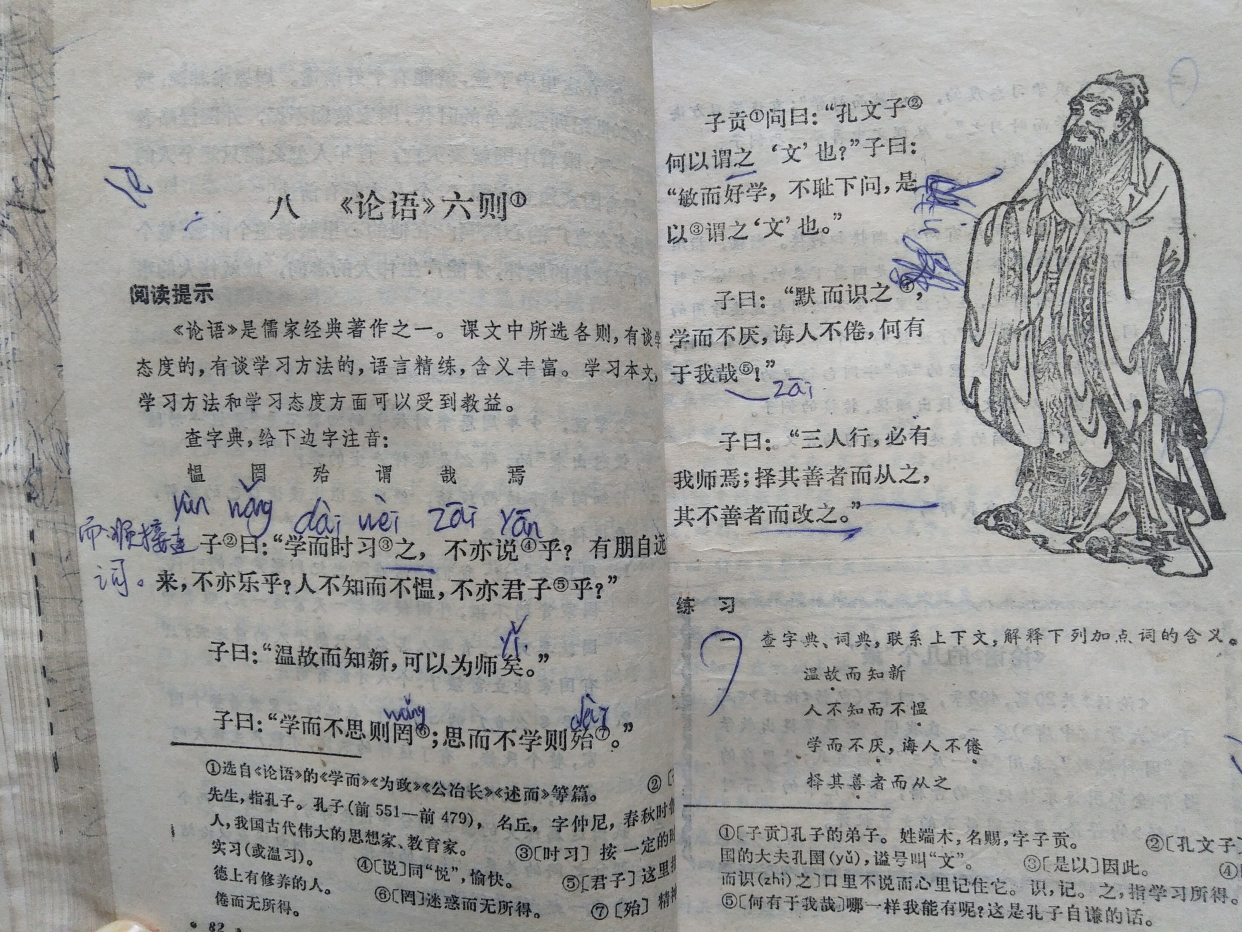 八 《论语》六则①
阅读提示
《论语》是儒家经典著作之一。课文中所选各则,有谈学
态度的,有谈学习方法的,语言精练,含义丰富。学习本文,
学习方法和学习态度方面可以受到教益。
查字典,给下边字注音:
愠 罔 殆 谓 哉 焉
yùn wǎng dài wèi zāi yān
而顺接连
词。
子②曰:“学而时习③之,不亦说④乎?有朋自远
来,不亦乐乎?人不知而不愠,不亦君子⑤乎?”
yǐ
子曰:“温故而知新,可以为师矣。”
wǎng dài
子曰:“学而不思则罔⑥;思而不学则殆⑦。”
①选自《论语》的《学而》《为政》《公冶长》《述而》等篇。 ②〔
先生,指孔子。孔子(前551—前479),名丘,字仲尼,春秋时
人,我国古代伟大的思想家、教育家。 ③〔时习〕按一定的
实习(或温习)。 ④〔说〕同“悦”,愉快。 ⑤〔君子〕这里
德上有修养的人。 ⑥〔罔〕迷惑而无所得。 ⑦〔殆〕精神
倦而无所得。
82
子贡①问曰:“孔文子②
何以谓之‘文’也?”子曰:
“敏而好学,不耻下问,是
以③谓之‘文’也。”
子曰:“默而识之④,
学而不厌,诲人不倦,何有
于我哉⑤!”
zāi
子曰:“三人行,必有
我师焉;择其善者而从之,
其不善者而改之。”
练 习
一 查字典、词典,联系上下文,解释下列加点词的含义。
温故而知新
人不知而不愠
学而不厌,诲人不倦
择其善者而从之
①〔子贡〕孔子的弟子。姓端木,名赐,字子贡。 ②〔孔文子
国的大夫孔圉(yǔ),谥号叫“文”。 ③〔是以〕因此。 ④
而识(zhì)之〕口里不说而心里记住它。识,记。之,指学习所得。
⑤〔何有于我哉〕哪一样我能有呢?这是孔子自谦的话。